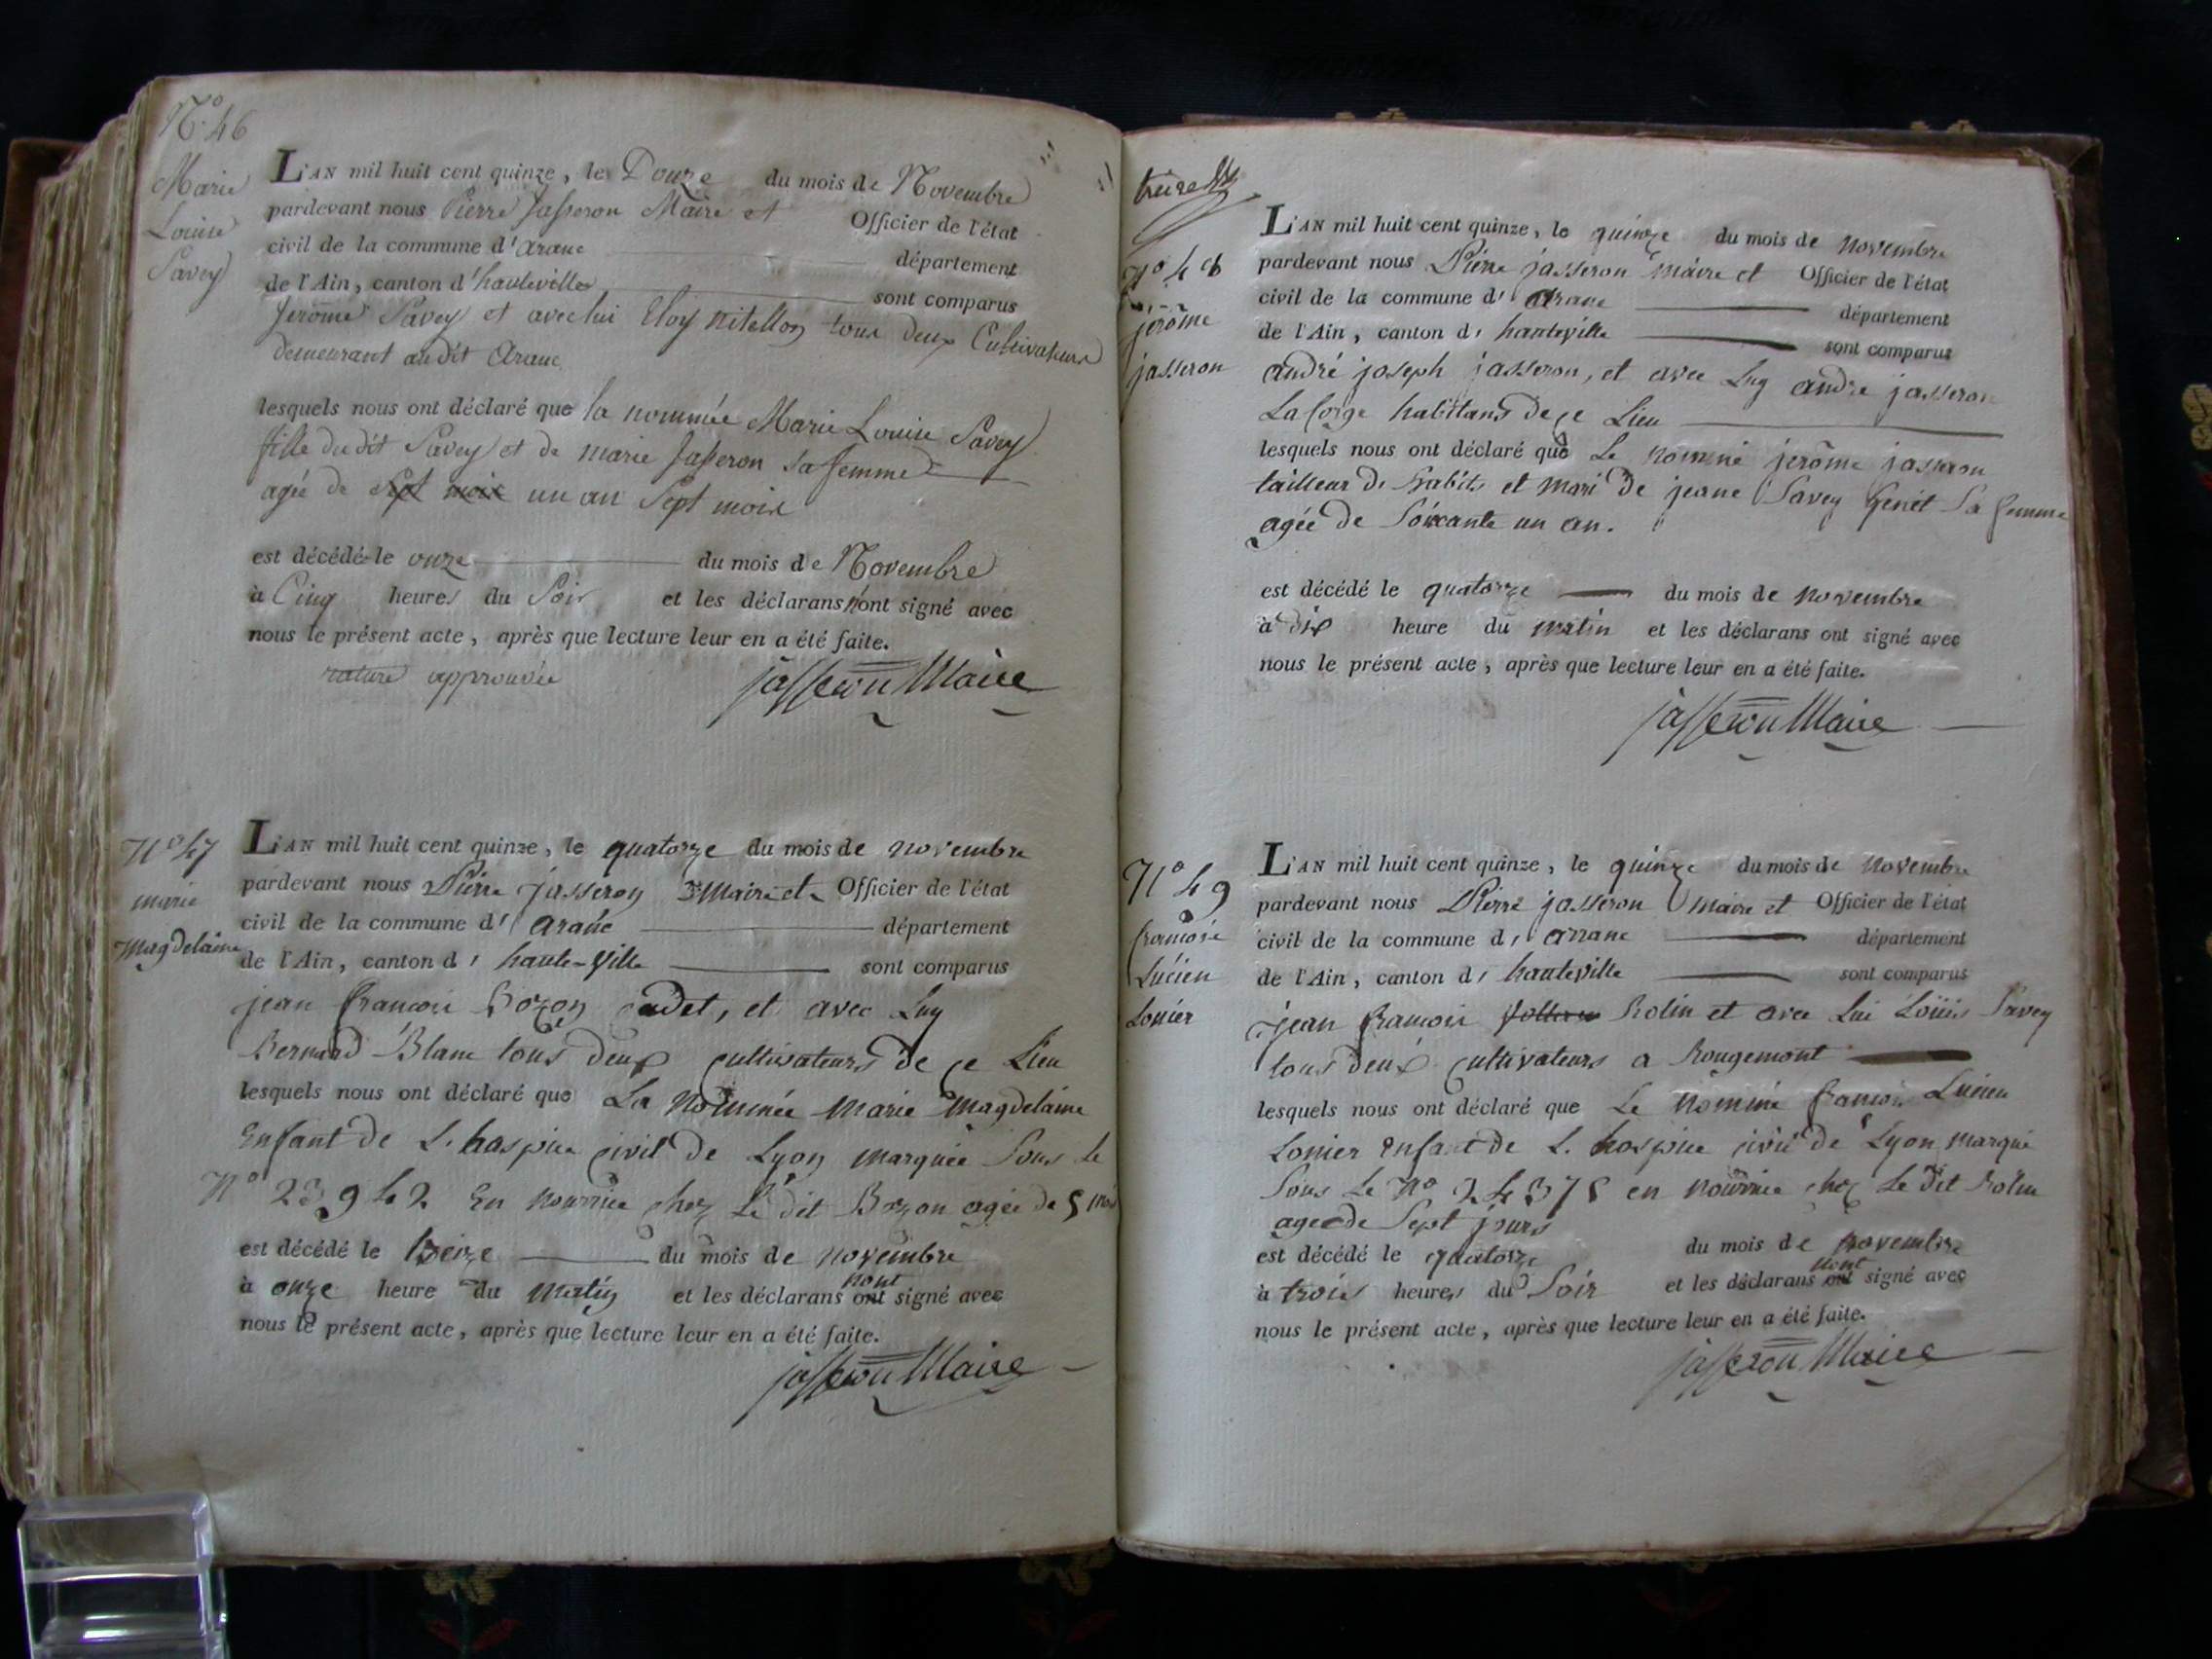 N.° 46
Marie
Louise
Savey
L'AN mil huit cent quinze, le Douze du mois de Novembre
pardevant nous Pierre Jasseron Maire et Officier de l'état
civil de la commune d'aranc département
de l'Ain, canton d'hauteville sont comparus
Jerôme Savey et avec lui Eloy nitellon tous deux Cultivateurs
demeurant audit Aranc
lesquels nous ont déclaré que la nommée Marie Louise Savey
fille dudit Savey et de marie Jasseron sa femme
agée de sept mois un an Sept mois
est décédé le onze du mois de Novembre
à Cinq heures du Soir et les déclarans n'ont signé avec
nous le présent acte, après que lecture leur en a été faite.
rature approuvée
jasseron Maire
N° 47
marie
magdelaine
L'AN mil huit cent quinze, le quatorze du mois de novembre
pardevant nous Pierre jasseron Maire et Officier de l'état
civil de la commune d'aranc département
de l'Ain, canton d'haute-ville sont comparus
jean francois Bozon cadet, et avec Luy
Bernard Blanc tous deux cultivateurs de ce Lieu
lesquels nous ont déclaré que La nommée Marie Magdelaine
Enfant de L. hospice civil de Lyon marquée Sous le
N° 23942 En nourrice chez Le dit Bozon agée de 5 mois
est décédé le treize du mois de novembre
à onze heure du Matin et les déclarans ont nont signé avec
nous le présent acte, après que lecture leur en a été faite.
jasseron Maire
N° 48
jerôme
jasseron
L'AN mil huit cent quinze, le quinze du mois de novembre
pardevant nous Pierre jasseron maire et Officier de l'état
civil de la commune d'aranc département
de l'Ain, canton d'hauteville sont comparus
andré joseph jasseron, et avec Luy andré jasseron
Laforge habitans de ce Lieu
lesquels nous ont déclaré que Le nommé jerôme jasseron
tailleur d'habits et mari de jeane Savey Genet Sa femme
agée de Soixante un an.
est décédé le quatorze du mois de novembre
à dix heure du matin et les déclarans ont signé avec
nous le présent acte, après que lecture leur en a été faite.
jasseron Maire
N° 49
francois
Lucien
Lonier
L'AN mil huit cent quinze, le quinze du mois de novembre
pardevant nous Pierre jasseron maire et Officier de l'état
civil de la commune d'arranc département
de l'Ain, canton d'hauteville sont comparus
jean francois Rolin et avec Lui Loüis Savey
tous deux cultivateurs a Rougemont
lesquels nous ont déclaré que Le nommé francois Lucien
Lonier enfant de L. hospice civil de Lyon marqué
Sous Le N° 24375 en nourrice chez Le dit Rolin
agé de Sept jours
est décédé le quatorze du mois de novembre
à trois heures du Soir et les déclarans ont nont signé avec
nous le présent acte, après que lecture leur en a été faite.
jasseron Maire